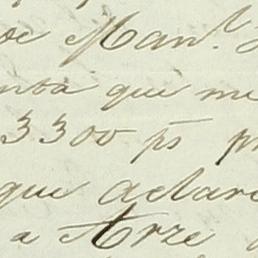 de Manl.
nta que me
3300 ps
que aclare
a Arze